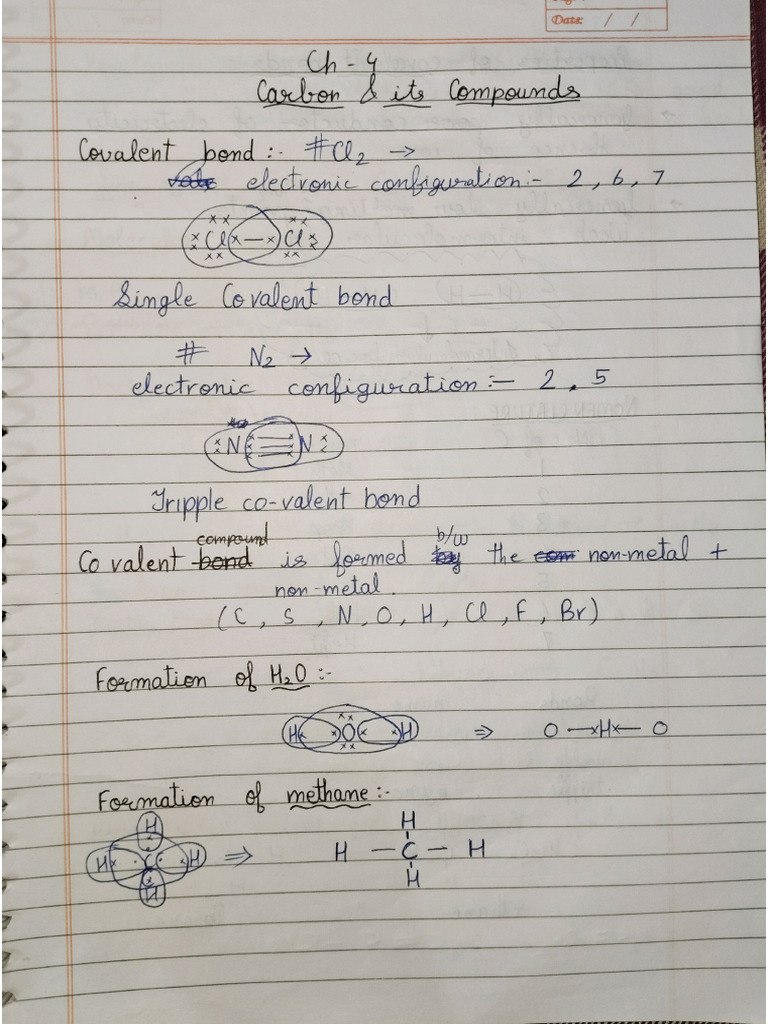 Date: / /
Ch - 4
Carbon & its Compounds
Covalent bond :- # Cl2 →
electronic configuration :- 2, 6, 7
Cl — Cl
Single Covalent bond
# N2 →
electronic configuration :- 2, 5
N ≡ N
Tripple co-valent bond
compound b/w
Co valent bond is formed by the com non-metal +
non-metal.
(C, S, N, O, H, Cl, F, Br)
Formation of H2O :-
H O H ⇒ O —xHx— O
Formation of methane :-
H H
H C H ⇒ H — C — H
H H